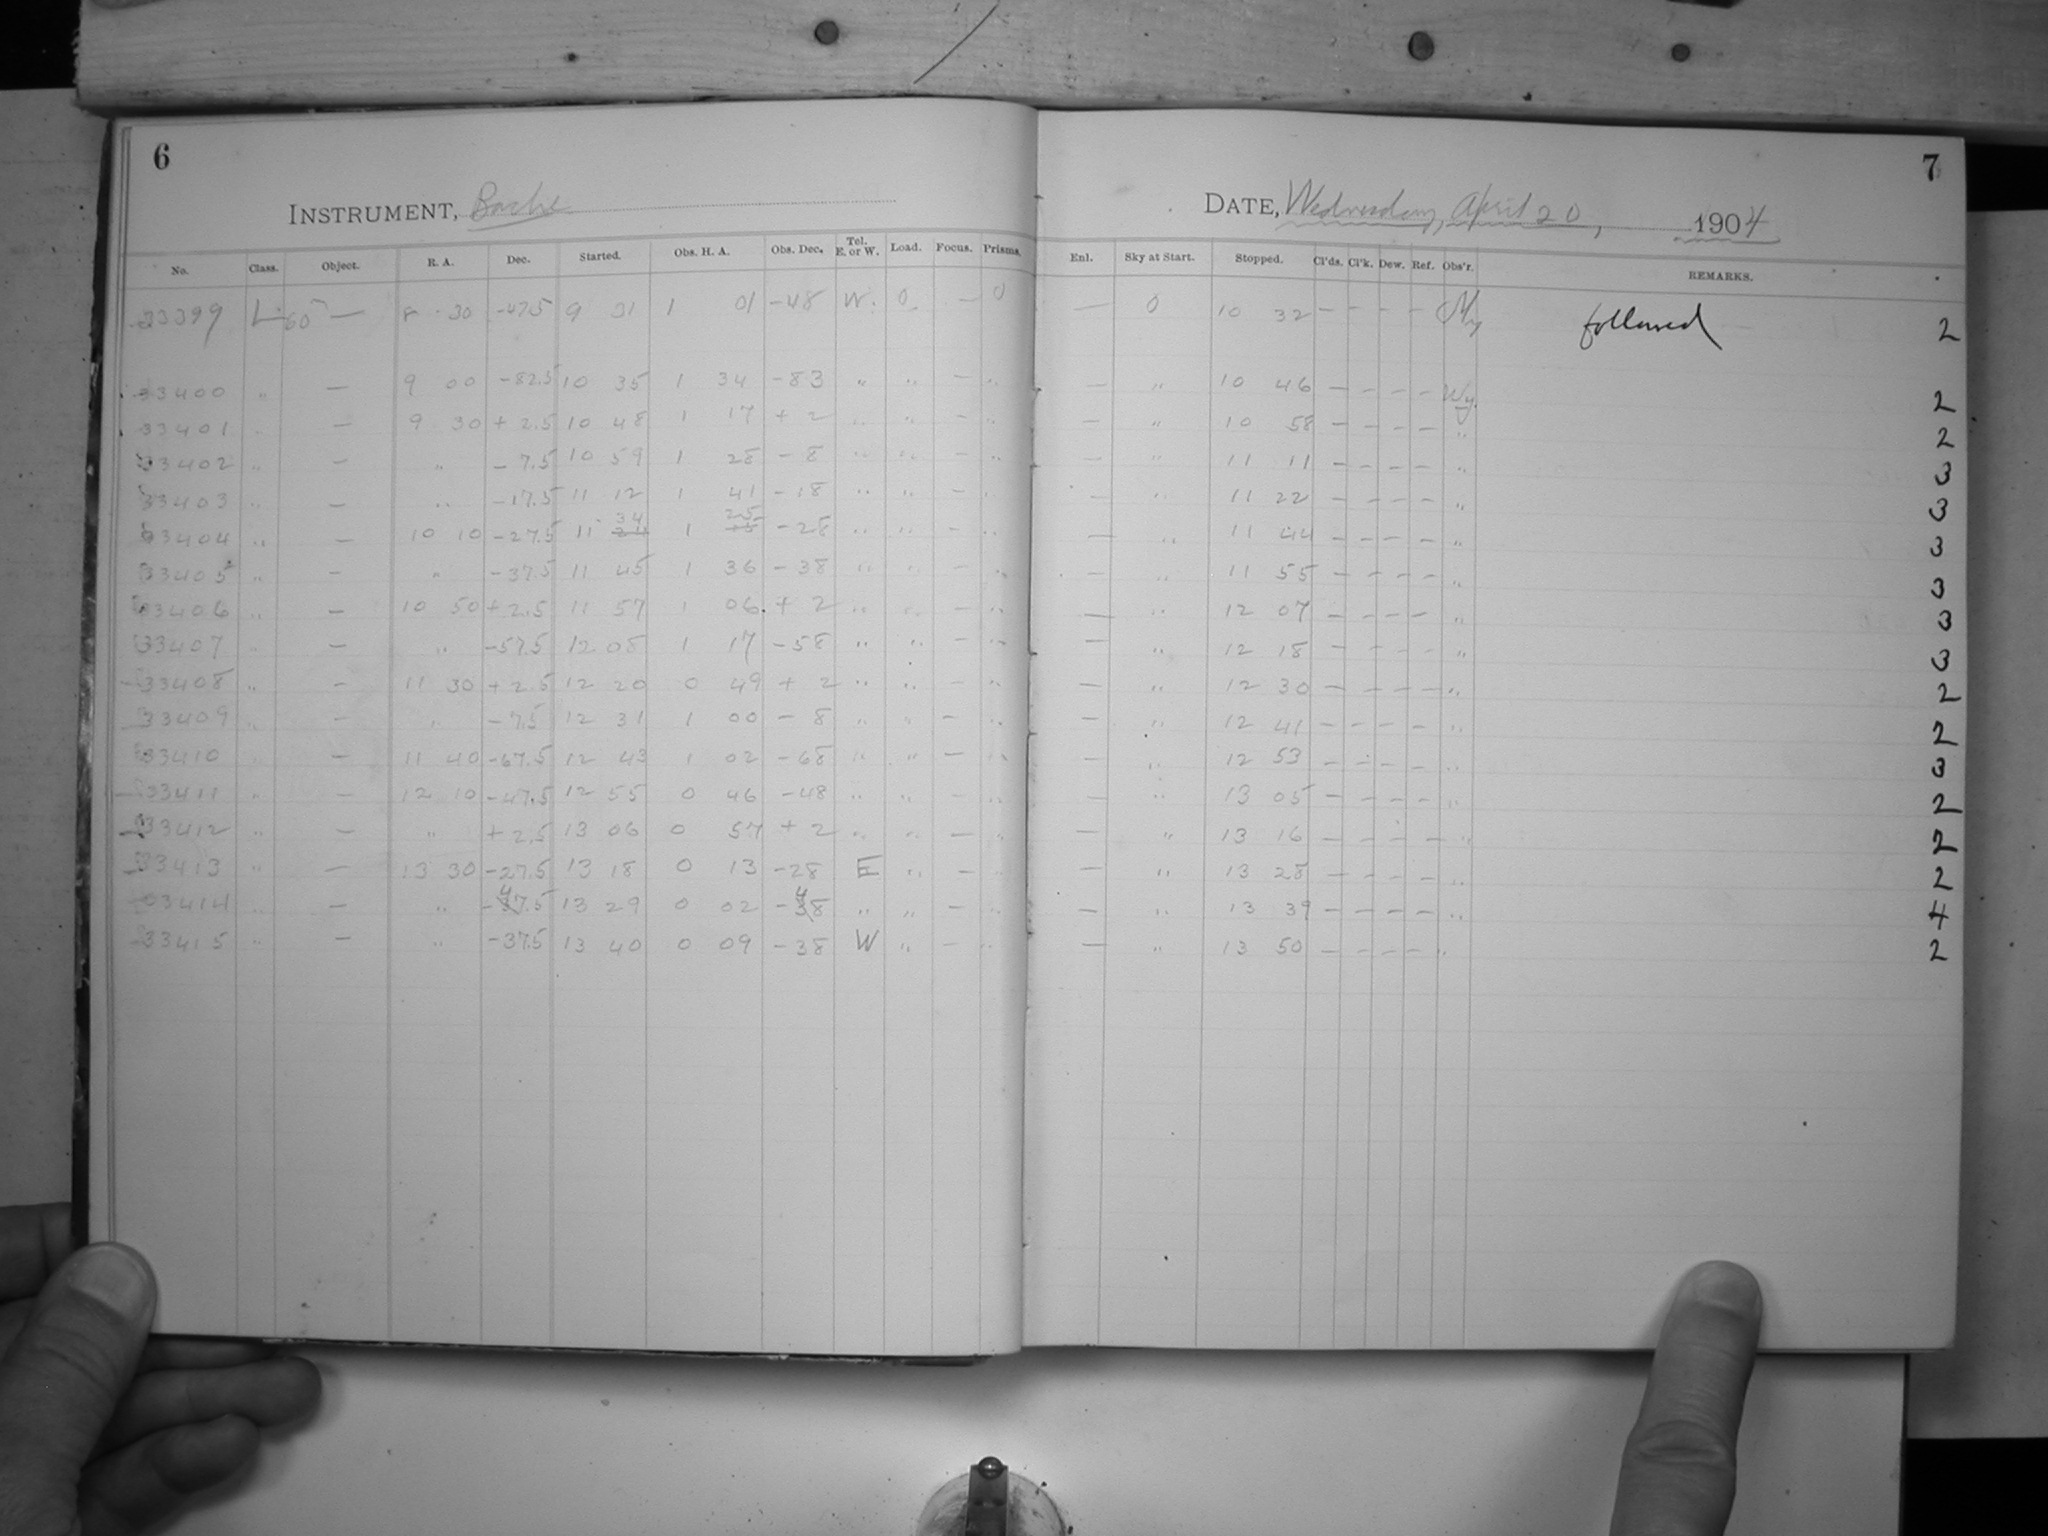 6
INSTRUMENT, Bache
No. Class. Object. R. A. Dec. Started. Obs. H. A. Obs. Dec. Tel. E. or W. Load. Focus. Prisms.
33399 L 60 — 8 30 -47.5 9 31 1 01 -48 W. 0 — 0
33400 " — 9 00 -82.5 10 35 1 34 -83 " " — "
33401 " — 9 30 + 2.5 10 48 1 17 + 2 " " — "
33402 " — " - 7.5 10 59 1 28 - 8 " " — "
33403 " — " -17.5 11 12 1 41 -18 " " — "
33404 " — 10 10 -27.5 11 34 1 25 -28 " " — "
33405 " — " -37.5 11 45 1 36 -38 " " — "
33406 " — 10 50 + 2.5 11 57 1 06 + 2 " " — "
33407 " — " -57.5 12 08 1 17 -58 " " — "
33408 " — 11 30 + 2.5 12 20 0 49 + 2 " " — "
33409 " — " - 7.5 12 31 1 00 - 8 " " — "
33410 " — 11 40 -67.5 12 43 1 02 -68 " " — "
33411 " — 12 10 -47.5 12 55 0 46 -48 " " — "
33412 " — " + 2.5 13 06 0 57 + 2 " " — "
33413 " — 13 30 -27.5 13 18 0 13 -28 E " — "
33414 " — " -47.5 13 29 0 02 -48 " " — "
33415 " — " -37.5 13 40 0 09 -38 W " — "
7
DATE, Wednesday, April 20, 1904
Enl. Sky at Start. Stopped. Cl'ds. Cl'k. Dew. Ref. Obs'r. REMARKS.
— 0 10 32 — — — — Wy followed 2
— " 10 46 — — — — Wy. 2
— " 10 58 — — — — " 2
— " 11 11 — — — — " 3
— " 11 22 — — — — " 3
— " 11 44 — — — — " 3
— " 11 55 — — — — " 3
— " 12 07 — — — — " 3
— " 12 18 — — — — " 3
— " 12 30 — — — — " 2
— " 12 41 — — — — " 2
— " 12 53 — — — — " 3
— " 13 05 — — — — " 2
— " 13 16 — — — — " 2
— " 13 28 — — — — " 2
— " 13 39 — — — — " 4
— " 13 50 — — — — " 2